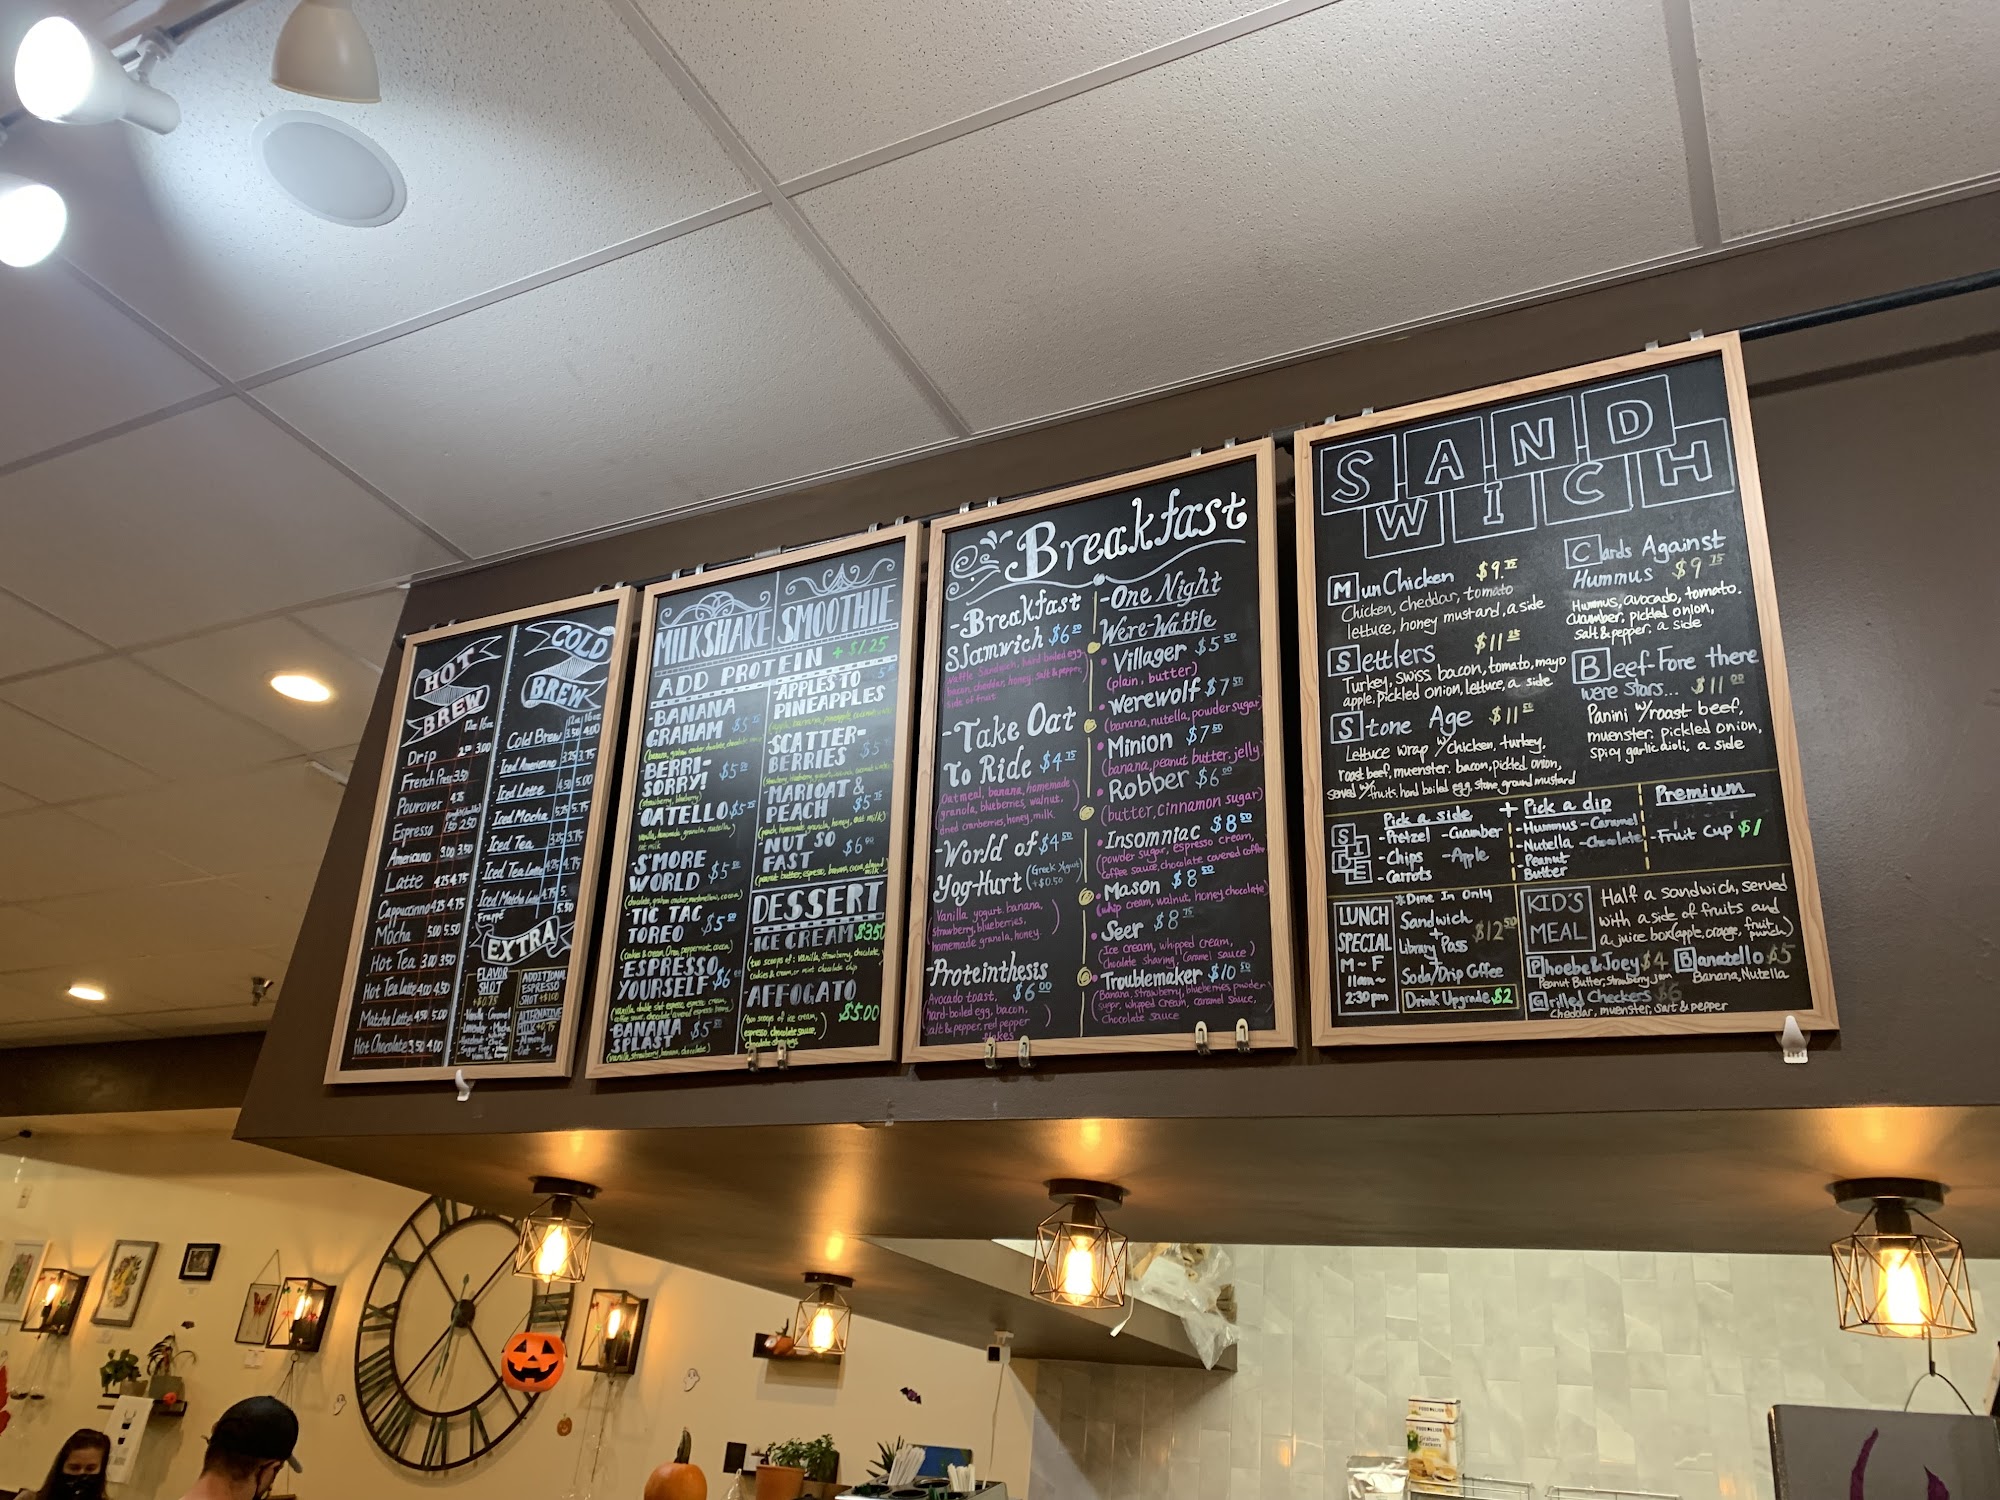 HOT
BREW
12oz 16oz
Drip 3.00
French Press 3.50
Pourover 4.25
Espresso 1.50 2.50
Americano 3.00 3.50
Latte 4.25 4.75
Cappuccino 4.25 4.75
Mocha 5.00 5.50
Hot Tea 3.00 3.50
Hot Tea Latte 4.00 4.50
Matcha Latte 4.50 5.00
Hot Chocolate 3.50 4.00
COLD
BREW
12oz 16oz
Cold Brew 3.50 4.00
Iced Americano 3.25 3.75
Iced Latte 4.50 5.00
Iced Mocha 5.25 5.75
Iced Tea 3.25 3.75
Iced Tea Latte 4.25 4.75
Iced Matcha Latte 4.75
Frappé 5.50
EXTRA
FLAVOR
SHOT
+$0.75
ADDITIONAL
ESPRESSO
SHOT +$1.00
ALTERNATIVE
MILK +0.75
MILKSHAKE SMOOTHIE
ADD PROTEIN + $1.25
-BANANA
GRAHAM
-BERRI-
SORRY!
(strawberry, blueberry)
-OATELLO
-S'MORE
WORLD
-TIC TAC
TOREO
-ESPRESSO
YOURSELF $6
-BANANA
SPLAST
(vanilla, strawberry, banana, chocolate)
-APPLES TO
PINEAPPLES
-SCATTER-
BERRIES
-MARIOAT &
PEACH
(peach, homemade granola, honey, oat milk)
-NUT SO
FAST
DESSERT
-ICE CREAM $3.50
(two scoops of: vanilla, strawberry, chocolate,
cookies & cream, or mint chocolate chip
-AFFOGATO
$5.00
(two scoops of ice cream,
espresso, chocolate sauce,
chocolate shavings
Breakfast
-Breakfast
Slamwich $6.50
Waffle Sandwich, hard boiled egg,
bacon, cheddar, honey, salt & pepper,
side of fruit
-Take Oat
To Ride $4.75
Oatmeal, banana, homemade
granola, blueberries, walnut,
dried cranberries, honey, milk
-World of $4.50
Yog-Hurt (Greek Yogurt
+$0.50)
Vanilla yogurt, banana,
strawberry, blueberries,
homemade granola, honey.
-Proteinthesis
$6.00
Avocado toast,
hard-boiled egg, bacon,
salt & pepper, red pepper
flakes
-One Night
Were-Waffle
• Villager $5.50
(plain, butter)
• Werewolf $7.50
(banana, nutella, powder sugar)
• Minion $7.50
(banana, peanut butter, jelly)
• Robber $6.00
(butter, cinnamon sugar)
• Insomniac $8.50
(powder sugar, espresso cream,
coffee sauce, chocolate covered coffee
• Mason $8.50
(whip cream, walnut, honey, chocolate)
• Seer $8.75
(Ice cream, whipped cream,
chocolate shaving, Caramel sauce)
• Troublemaker $10.50
(Banana, strawberry, blueberries, powder
sugar, whipped cream, caramel sauce,
chocolate sauce
SAND
WICH
MunChicken
Chicken, cheddar, tomato
lettuce, honey mustard, a side
Settlers $11.25
Turkey, swiss bacon, tomato, mayo
apple, pickled onion, lettuce, a side
Stone Age
Lettuce wrap w/ chicken, turkey,
roast beef, muenster, bacon, pickled onion,
served w/ fruits, hard boiled egg, stone ground mustard
Cards Against
Hummus $9.75
Hummus, avocado, tomato.
Cucumber, pickled onion,
salt & pepper, a side
Beef-Fore there
were stars... $11.00
Panini w/ roast beef,
muenster. pickled onion,
spicy garlic aioli, a side
SIDE
Pick a side
-Pretzel -Cucumber
-Chips -Apple
-Carrots
+
Pick a dip
-Hummus -Caramel
-Nutella -Chocolate
-Peanut
Butter
Premium
-Fruit Cup $1
LUNCH
SPECIAL
M~F
11am~
2:30pm
*Dine In Only
Sandwich
+
Library Pass
+
Soda/Drip Coffee
$12.50
Drink Upgrade $2
KID'S
MEAL
Half a sandwich, served
with a side of fruits and
a juice box (apple, orange, fruit
punch)
Phoebe & Joey $4
Peanut Butter, Strawberry jam
Banatello $5
Banana, Nutella
Grilled Checkers $6
Cheddar, muenster, salt & pepper
FOOD LION
FOOD LION
Graham
Crackers